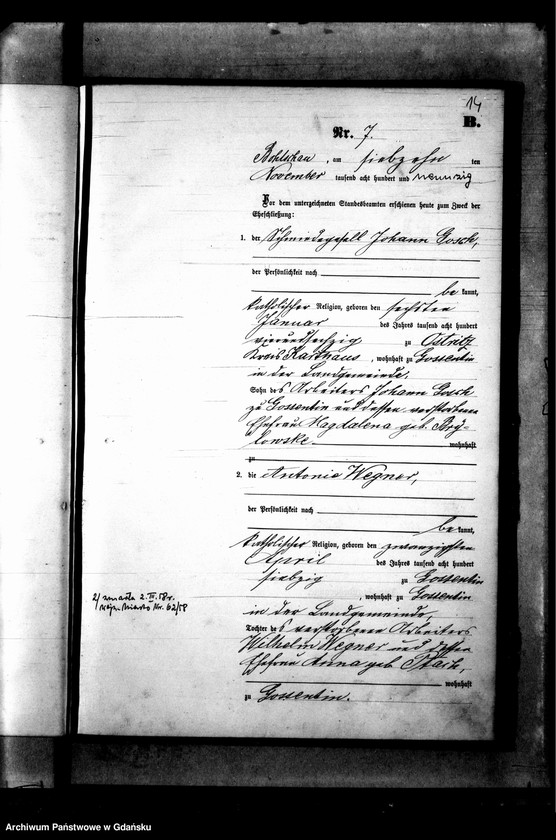 14
B.
Nr. 7.
Bohlschau, am siebzehn ten
November tausend acht hundert und neunzig
Vor dem unterzeichneten Standesbeamten erschienen heute zum Zweck der
Eheschließung:
1. der Schmiedegesell Johann Gosch,
der Persönlichkeit nach
be kannt,
katholischer Religion, geboren den sechsten
Januar des Jahres tausend acht hundert
vierundsechzig zu Ostritz
Kreis Karthaus, wohnhaft zu Gossentin
in der Landgemeinde,
Sohn des Arbeiters Johann Gosch
zu Gossentin und dessen verstorbene
Ehefrau Magdalena geb. Bry-
lowske wohnhaft
zu
2. die Antonie Wegner,
der Persönlichkeit nach
be kannt,
katholischer Religion, geboren den zwanzigsten
April des Jahres tausend acht hundert
siebzig zu Gossentin
, wohnhaft zu Gossentin
in der Landgemeinde,
Tochter des verstorbenen Arbeiters
Wilhelm Wegner und dessen
Ehefrau Anna geb.
wohnhaft
zu Gossentin.
2/ zmarła 2.IV.58r.
Nr. 62/58
Archiwum Państwowe w Gdańsku